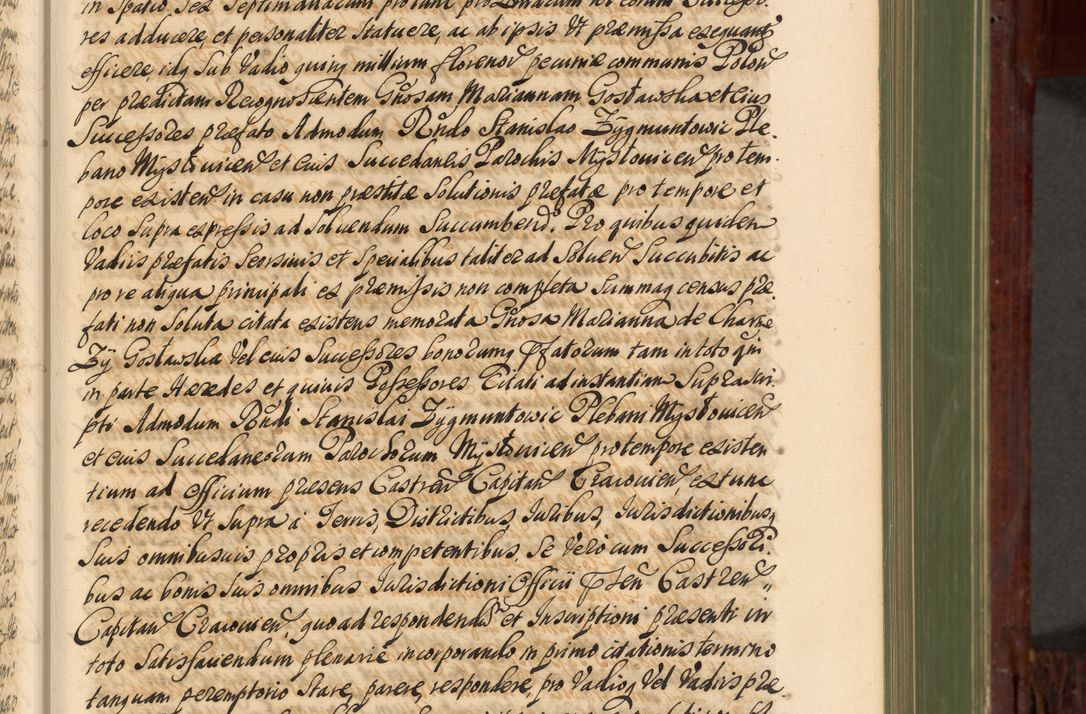 in spatio sex septimanarum
res adducere, et personaliter statuere, ac ab ipsis Ut præmissa exequant
efficere, idq Sub Vadio quinq millium florenor pecuniæ communis Polon
per prædictam Recognoscentem Gnosam Mariannam Gostawska et eius
Successores præfato Admodum Rndo Stanislao Zÿgmuntowic Ple-
bano Mÿstowicen et eius Succedaneis Parochis Mÿstowicen pro tem-
pore existen in casu non præstitæ Solutionis præfatæ pro tempore et
loco Supra expressis ad Soluendum Succumbend. Pro quibus quidem
Vadiis præfatis Seorsiuis et Specialibus taliter ad Soluen Succubitis ac
pro re aliqua principali ex præmissis non completa Summaq census præ-
fati non Soluta citata existens memorata Gnosa Marianna de Charze
Zÿ Gostawska Vel eius Successores bonorumq Pfatorum tam in toto qm
in parte Hæredes et quiuis Possessores Citati ad instantiam Suprascri
pti Admodum Rndi Stanislai Zÿgmuntowic Plebani Mÿstowicen
et eius Succedaneorum Parochorum Mÿstowicen pro tempore existen
tium ad Officium præsens Castren Capitan Cracouien, ex tunc
recedendo Ut Supra á Terris, Districtibus, Iuribus, Iurisdictionibusq
Suis omnibusuis proprÿs et competentibus, Se Vero cum Successori-
bus ac bonis Suis omnibus Iurisdictioni Officii Psen Castren
Capitan Cracouien, quoad respondend et Inscriptioni præsenti in
toto Satisfaciendum plenarié incorporando in primo citationis termino
tanquam peremptorio Stare, parere, respondere, pro Vadioq Vel Vadiis præ